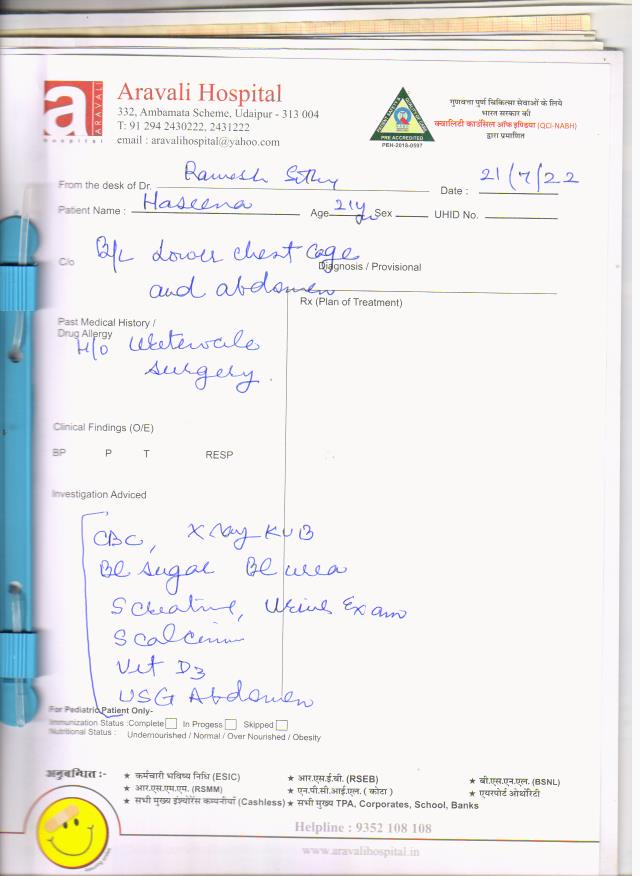 a
ARAVALI
hospital
Aravali Hospital
332, Ambamata Scheme, Udaipur - 313 004
T: 91 294 2430222, 2431222
email : aravalihospital@yahoo.com
PRE ACCREDITED
PEH-2018-0597
गुणवत्ता पुर्ण चिकित्सा सेवाओं के लिये
भारत सरकार की
क्वालिटी काउंसिल ऑफ इण्डिया (QCI-NABH)
द्वारा प्रमाणित
From the desk of Dr. Ramesh Date : 21/7/22
Patient Name : Haseena Age 21y Sex UHID No.
C/o B/L Lower chest cage
Diagnosis / Provisional
and abdomen
Rx (Plan of Treatment)
Past Medical History /
Drug Allergy
H/O
surgery.
Clinical Findings (O/E)
BP P T RESP
Investigation Adviced
CBC, X ray KUB
Bl sugar Bl urea
S creatine, Urine Exam
S calcium
Vit D3
USG Abdomen
For Pediatric Patient Only-
Immunization Status :Complete In Progess Skipped
Nutritional Status : Undernourished / Normal / Over Nourished / Obesity
अनुबन्धित :- ★ कर्मचारी भविष्य निधि (ESIC) ★ आर.एस.ई.बी. (RSEB) ★ बी.एस.एन.एल. (BSNL)
★ आर.एस.एम.एम. (RSMM) ★ एन.पी.सी.आई.एल. ( कोटा ) ★ एयरपोर्ट ऑथोरिटी
★ सभी मुख्य इंश्योरेंस कम्पनीयाँ (Cashless) ★ सभी मुख्य TPA, Corporates, School, Banks
Helpline : 9352 108 108
www.aravalihospital.in